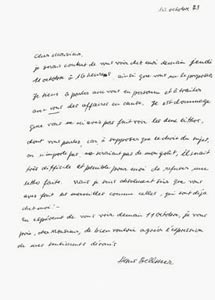 10 octobre
Cher Monsieur,
je serais content de vous voir chez moi demain jeudi
11 octobre à 16 heures ainsi que vous me le proposez.
Je tiens à parler avec vous en personne et à traiter
avec vous des affaires en cause. Il est dommage
que vous ne m'ayez pas fait voir les deux lettres,
dont vous parlez, car à supposer que le choix du sujet,
ou n'importe quoi ne seraient pas de mon goût, il serait
très difficile et pénible pour moi de refuser une
telle faite. Mais je suis absolument sûr que vous
avez fait des merveilles comme celles, qui sont déjà
chez moi!
En espérant de vous voir demain 11 octobre, je vous
prie, cher Monsieur, de bien vouloir agréer l'expression
de mes sentiments dévoués
Hans Bellmer